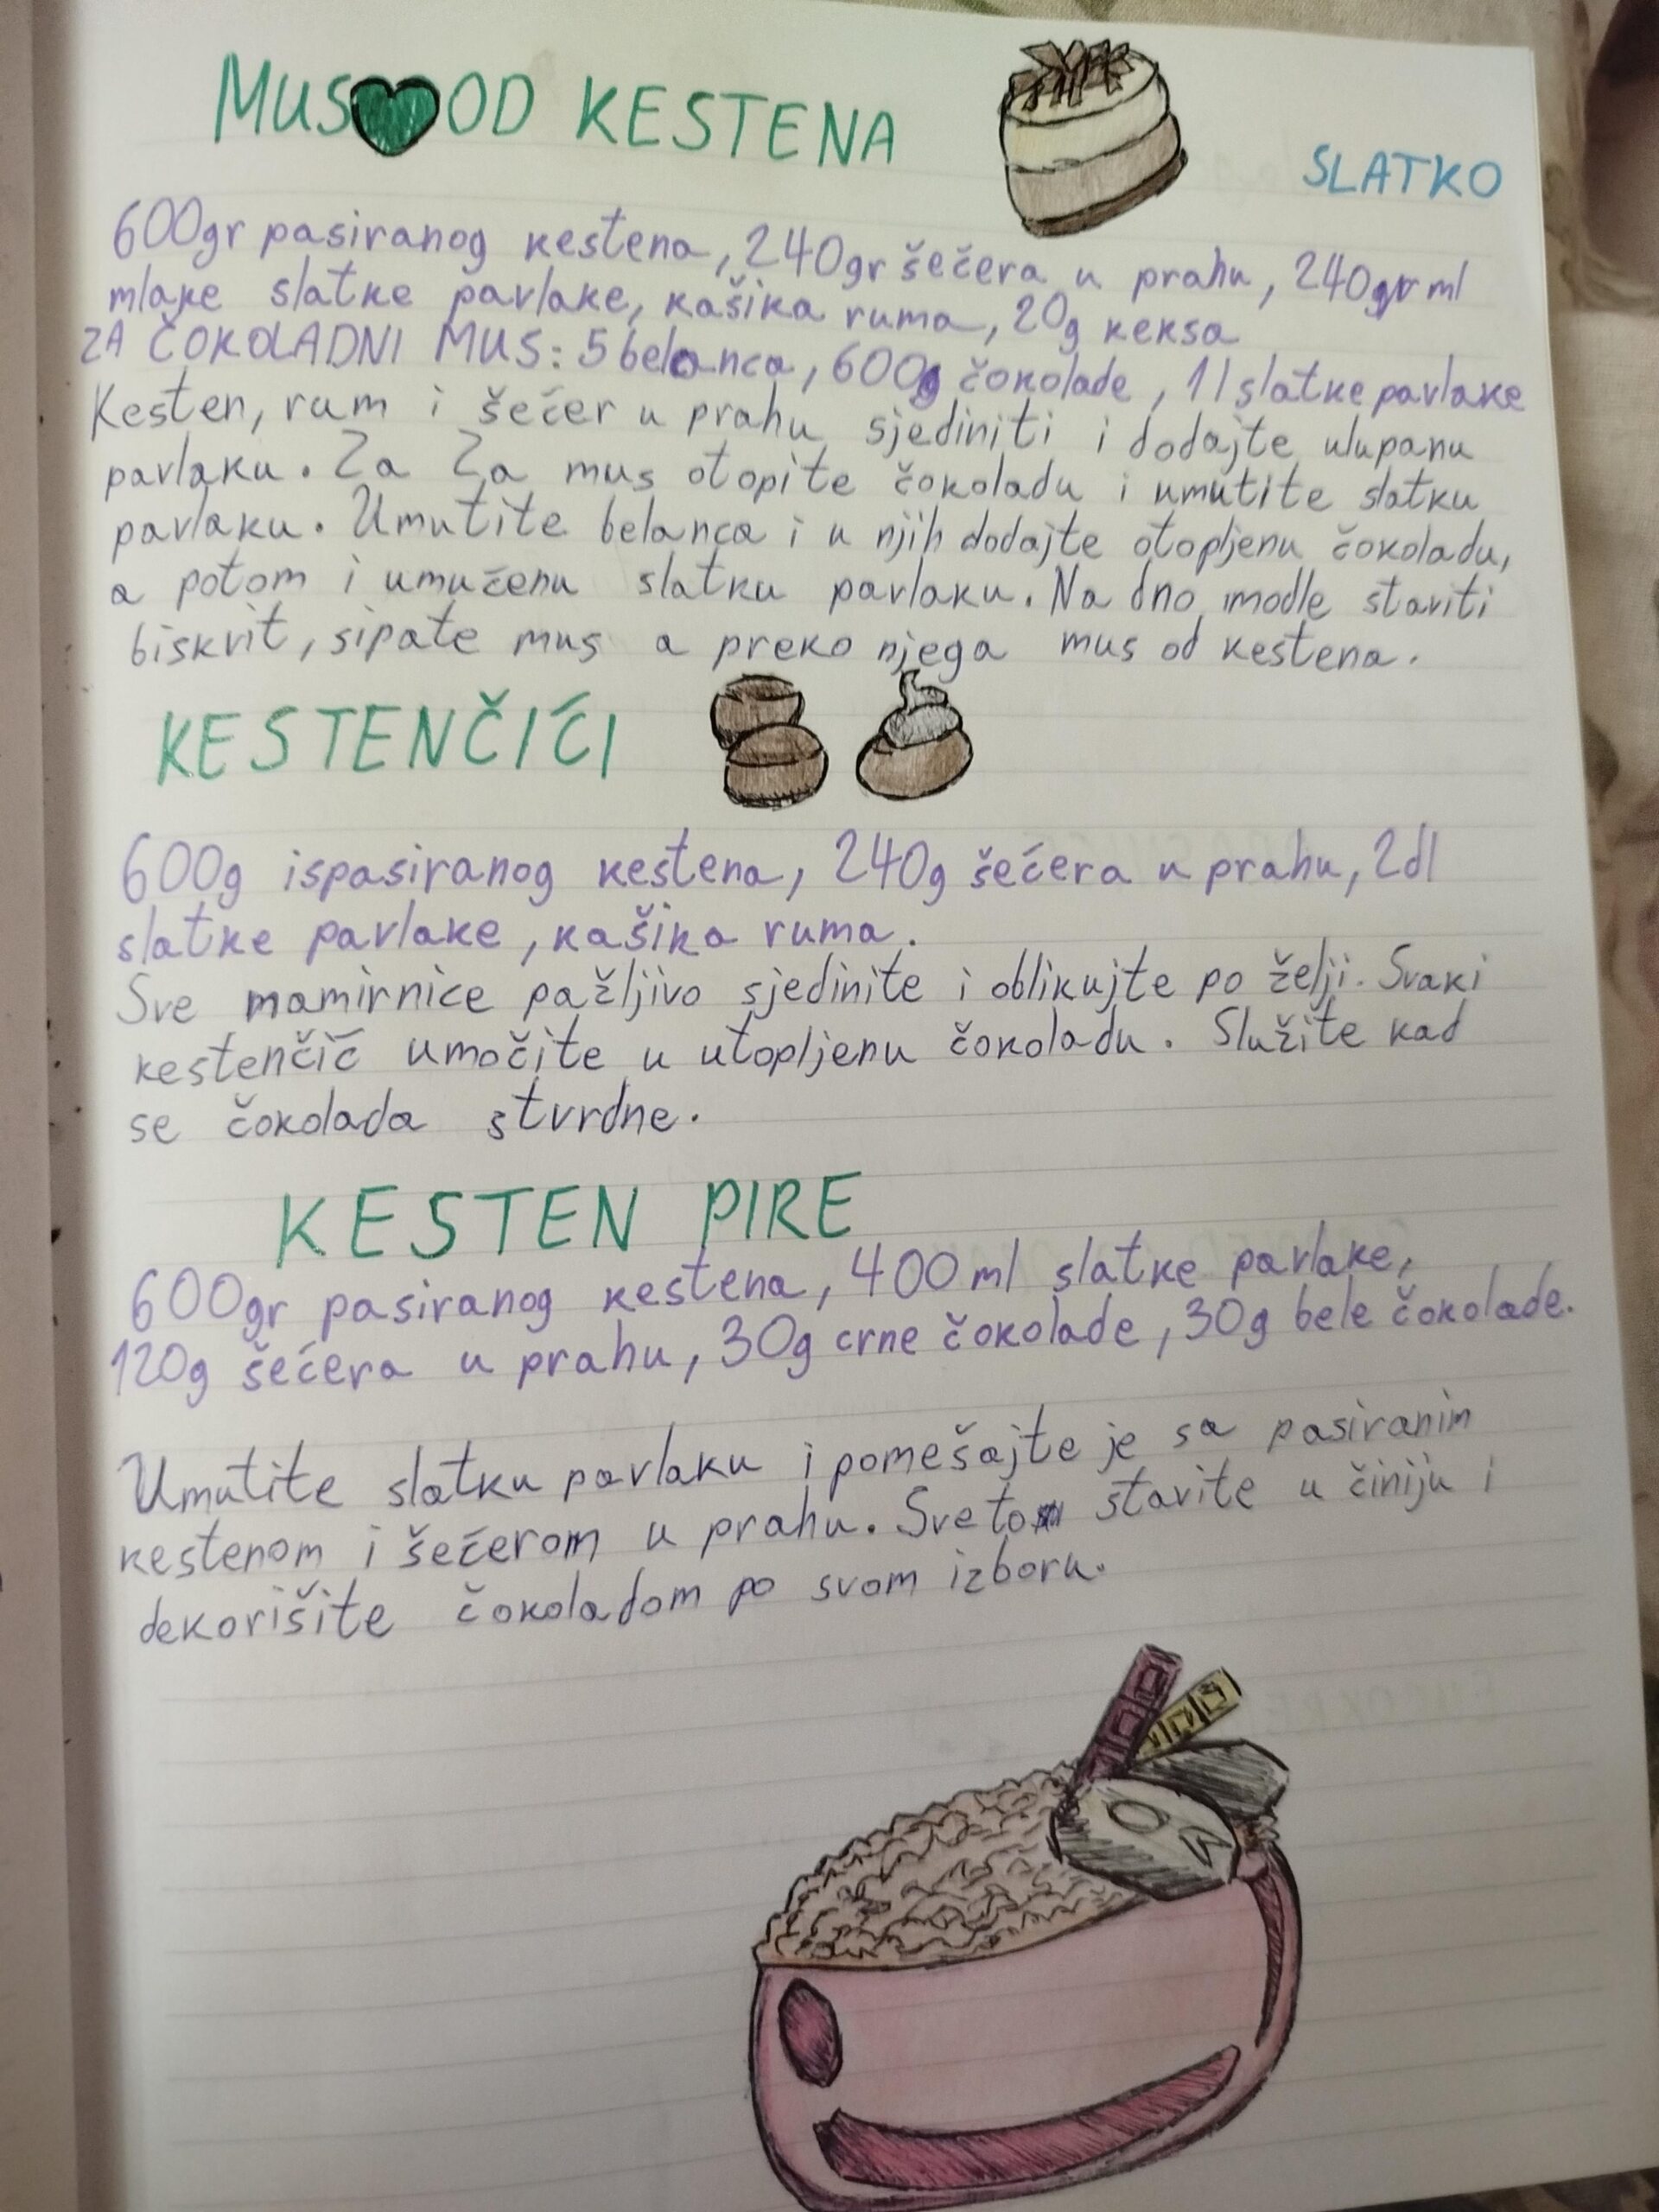 MUS OD KESTENA
SLATKO
600gr pasiranog kestena, 240gr šečera u prahu, 240 ml
mlake slatke pavlake, kašika ruma, 20g keksa
ZA ČOKOLADNI MUS: 5 belanca, 600g čokolade, 1l slatke pavlake
Kesten, rum i šećer u prahu sjediniti i dodajte ulupanu
pavlaku. Za Za mus otopite čokoladu i umutite slatku
pavlaku. Umutite belanca i u njih dodajte otopljenu čokoladu,
a potom i umućenu slatku pavlaku. Na dno modle staviti
biskvit, sipate mus a preko njega mus od kestena.
KESTENČIĆI
600g ispasiranog kestena, 240g šećera u prahu, 2dl
slatke pavlake, kašika ruma.
Sve mamirnice pažljivo sjedinite i oblikujte po želji. Svaki
kestenčić umočite u utopljenu čokoladu. Služite kad
se čokolada stvrdne.
KESTEN PIRE
600gr pasiranog kestena, 400ml slatke pavlake,
120g šećera u prahu, 30g crne čokolade, 30g bele čokolade.
Umutite slatku pavlaku i pomešajte je sa pasiranim
kestenom i šećerom u prahu. Sve to stavite u činiju i
dekorišite čokoladom po svom izboru.